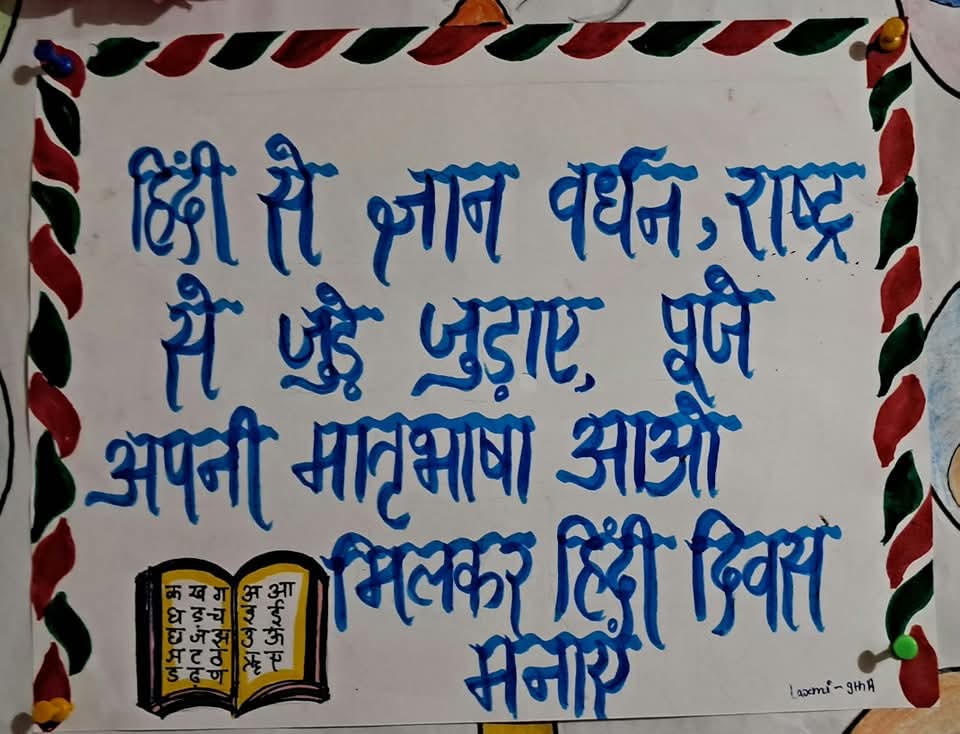 हिंदी से ज्ञान वर्धन, राष्ट्र
से जुड़े जुड़ाए, पूजे
अपनी मातृभाषा आओ
मिलकर हिंदी दिवस
मनाएं
क ख ग अ आ
घ ङ च इ ई
छ ज झ उ ऊ
ञ ट ठ ऋ ए
ड ढ ण
Laxmi - 9th A